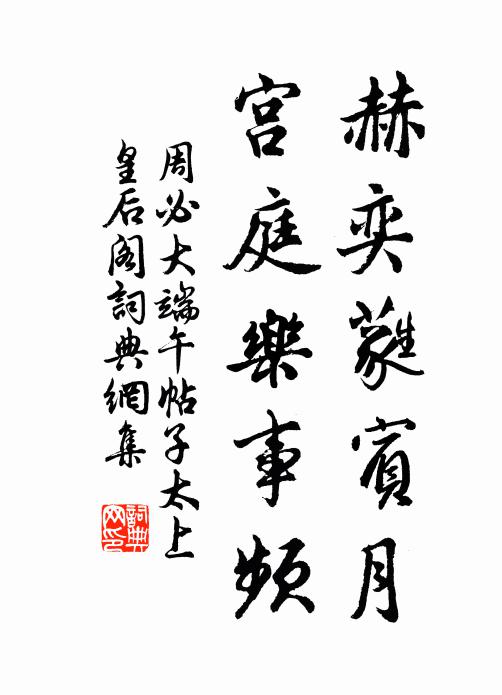 赫奕蕤賓月
宮庭樂事頻
周必大端午帖子太上
皇后阁詞典網集
詞典網印